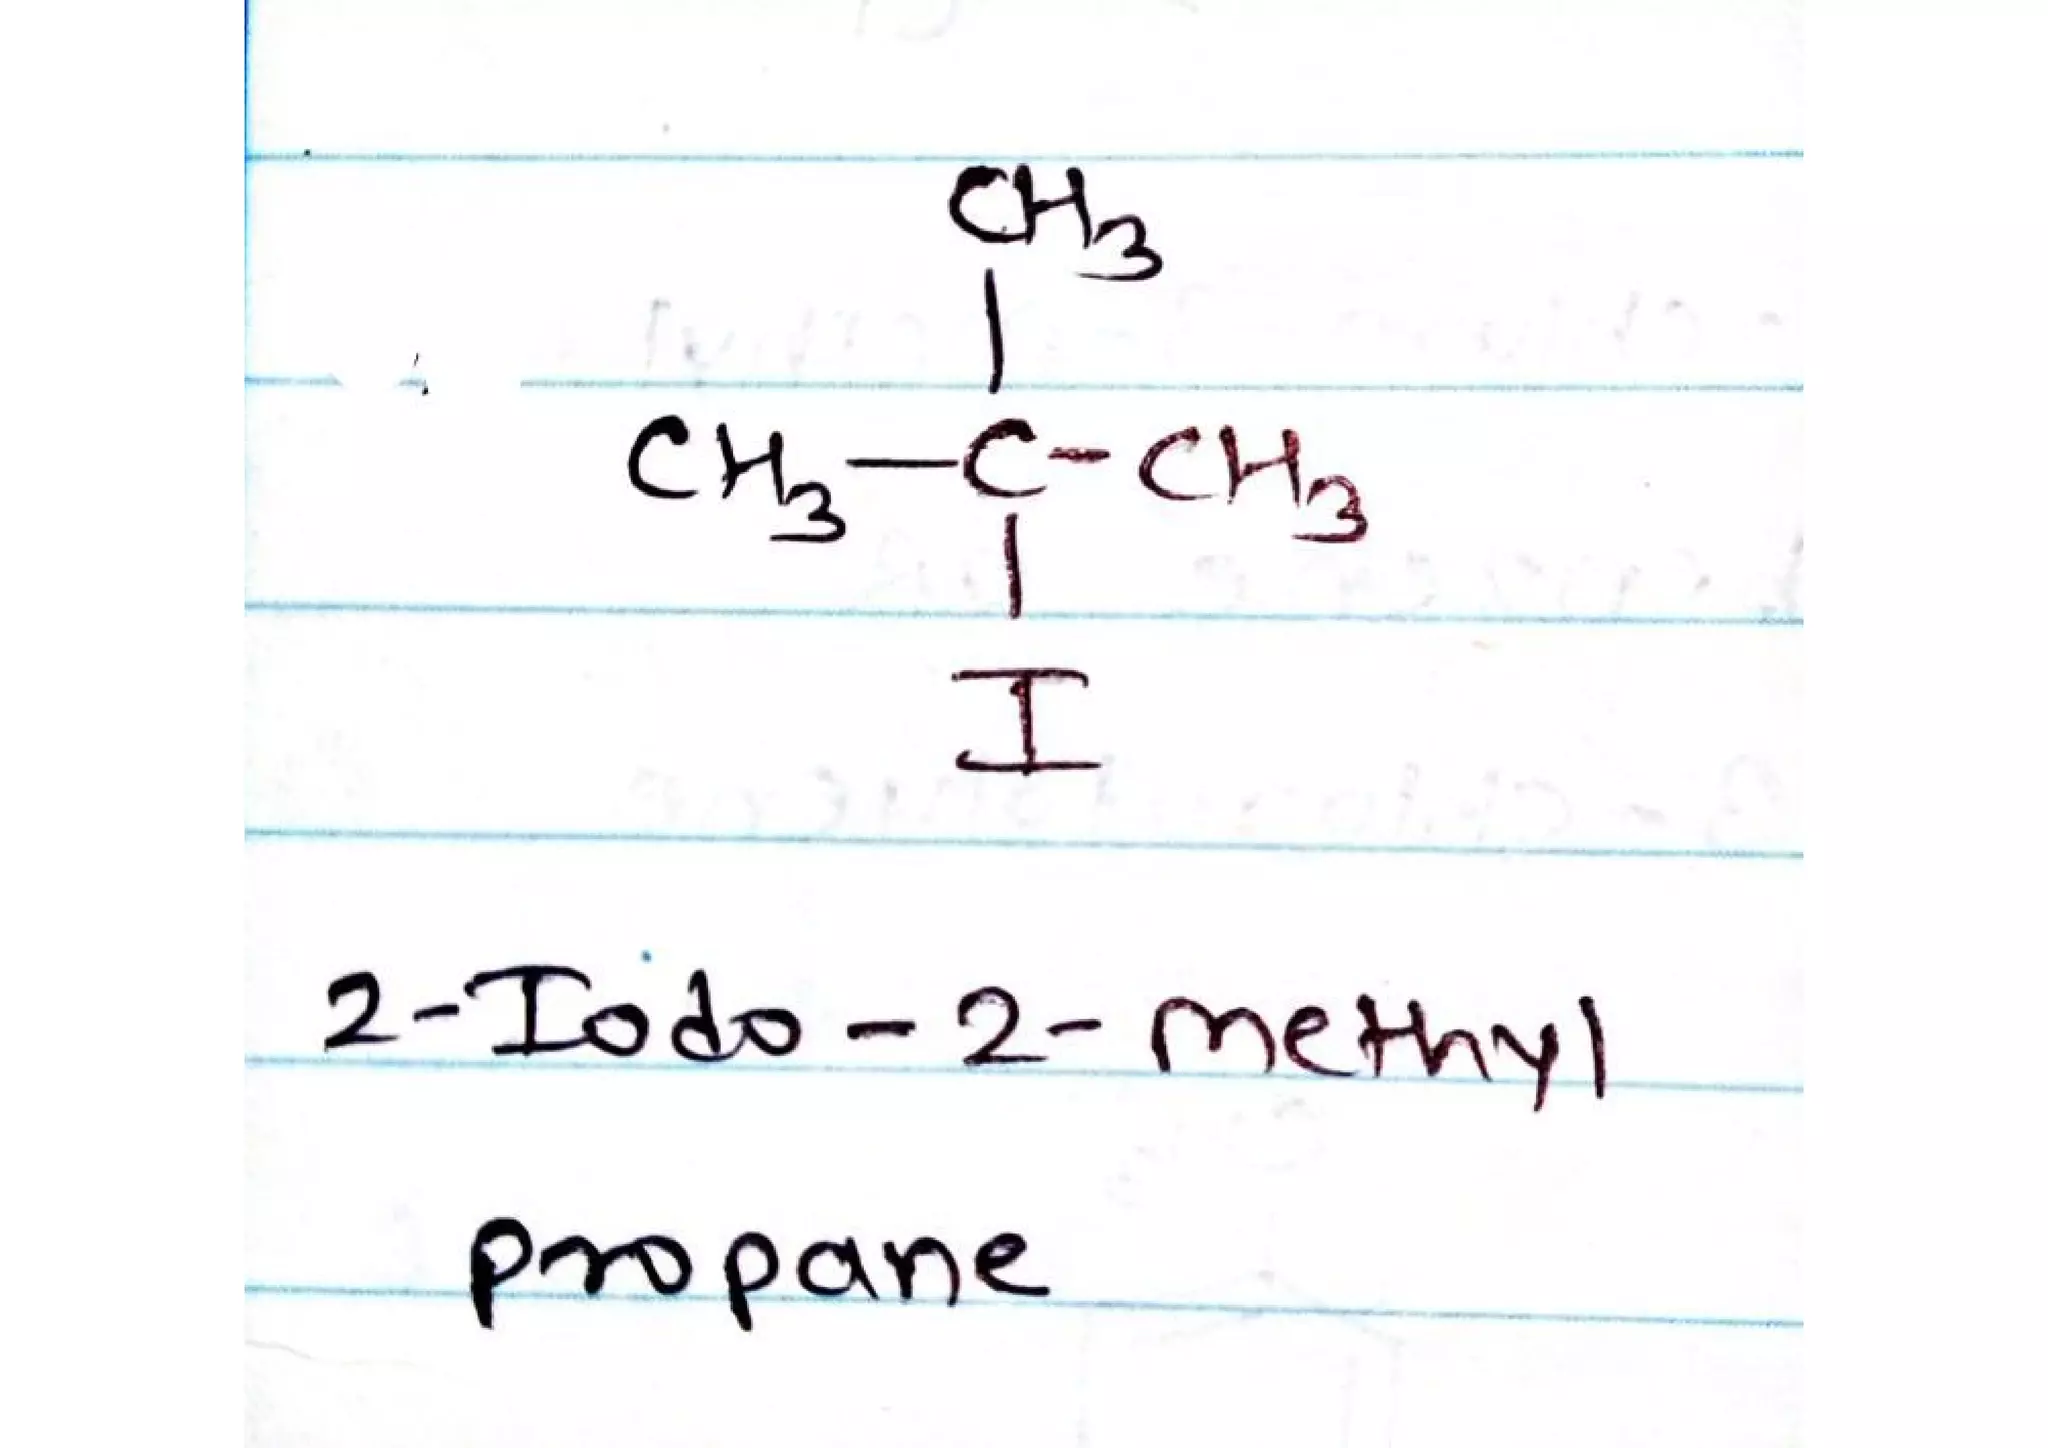 CH3
CH3-C-CH3
I
2-Iodo-2-methyl
propane